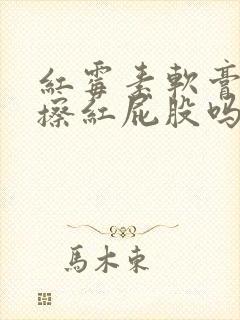 紅霉素軟膏
擦紅屁股吗
馬木東